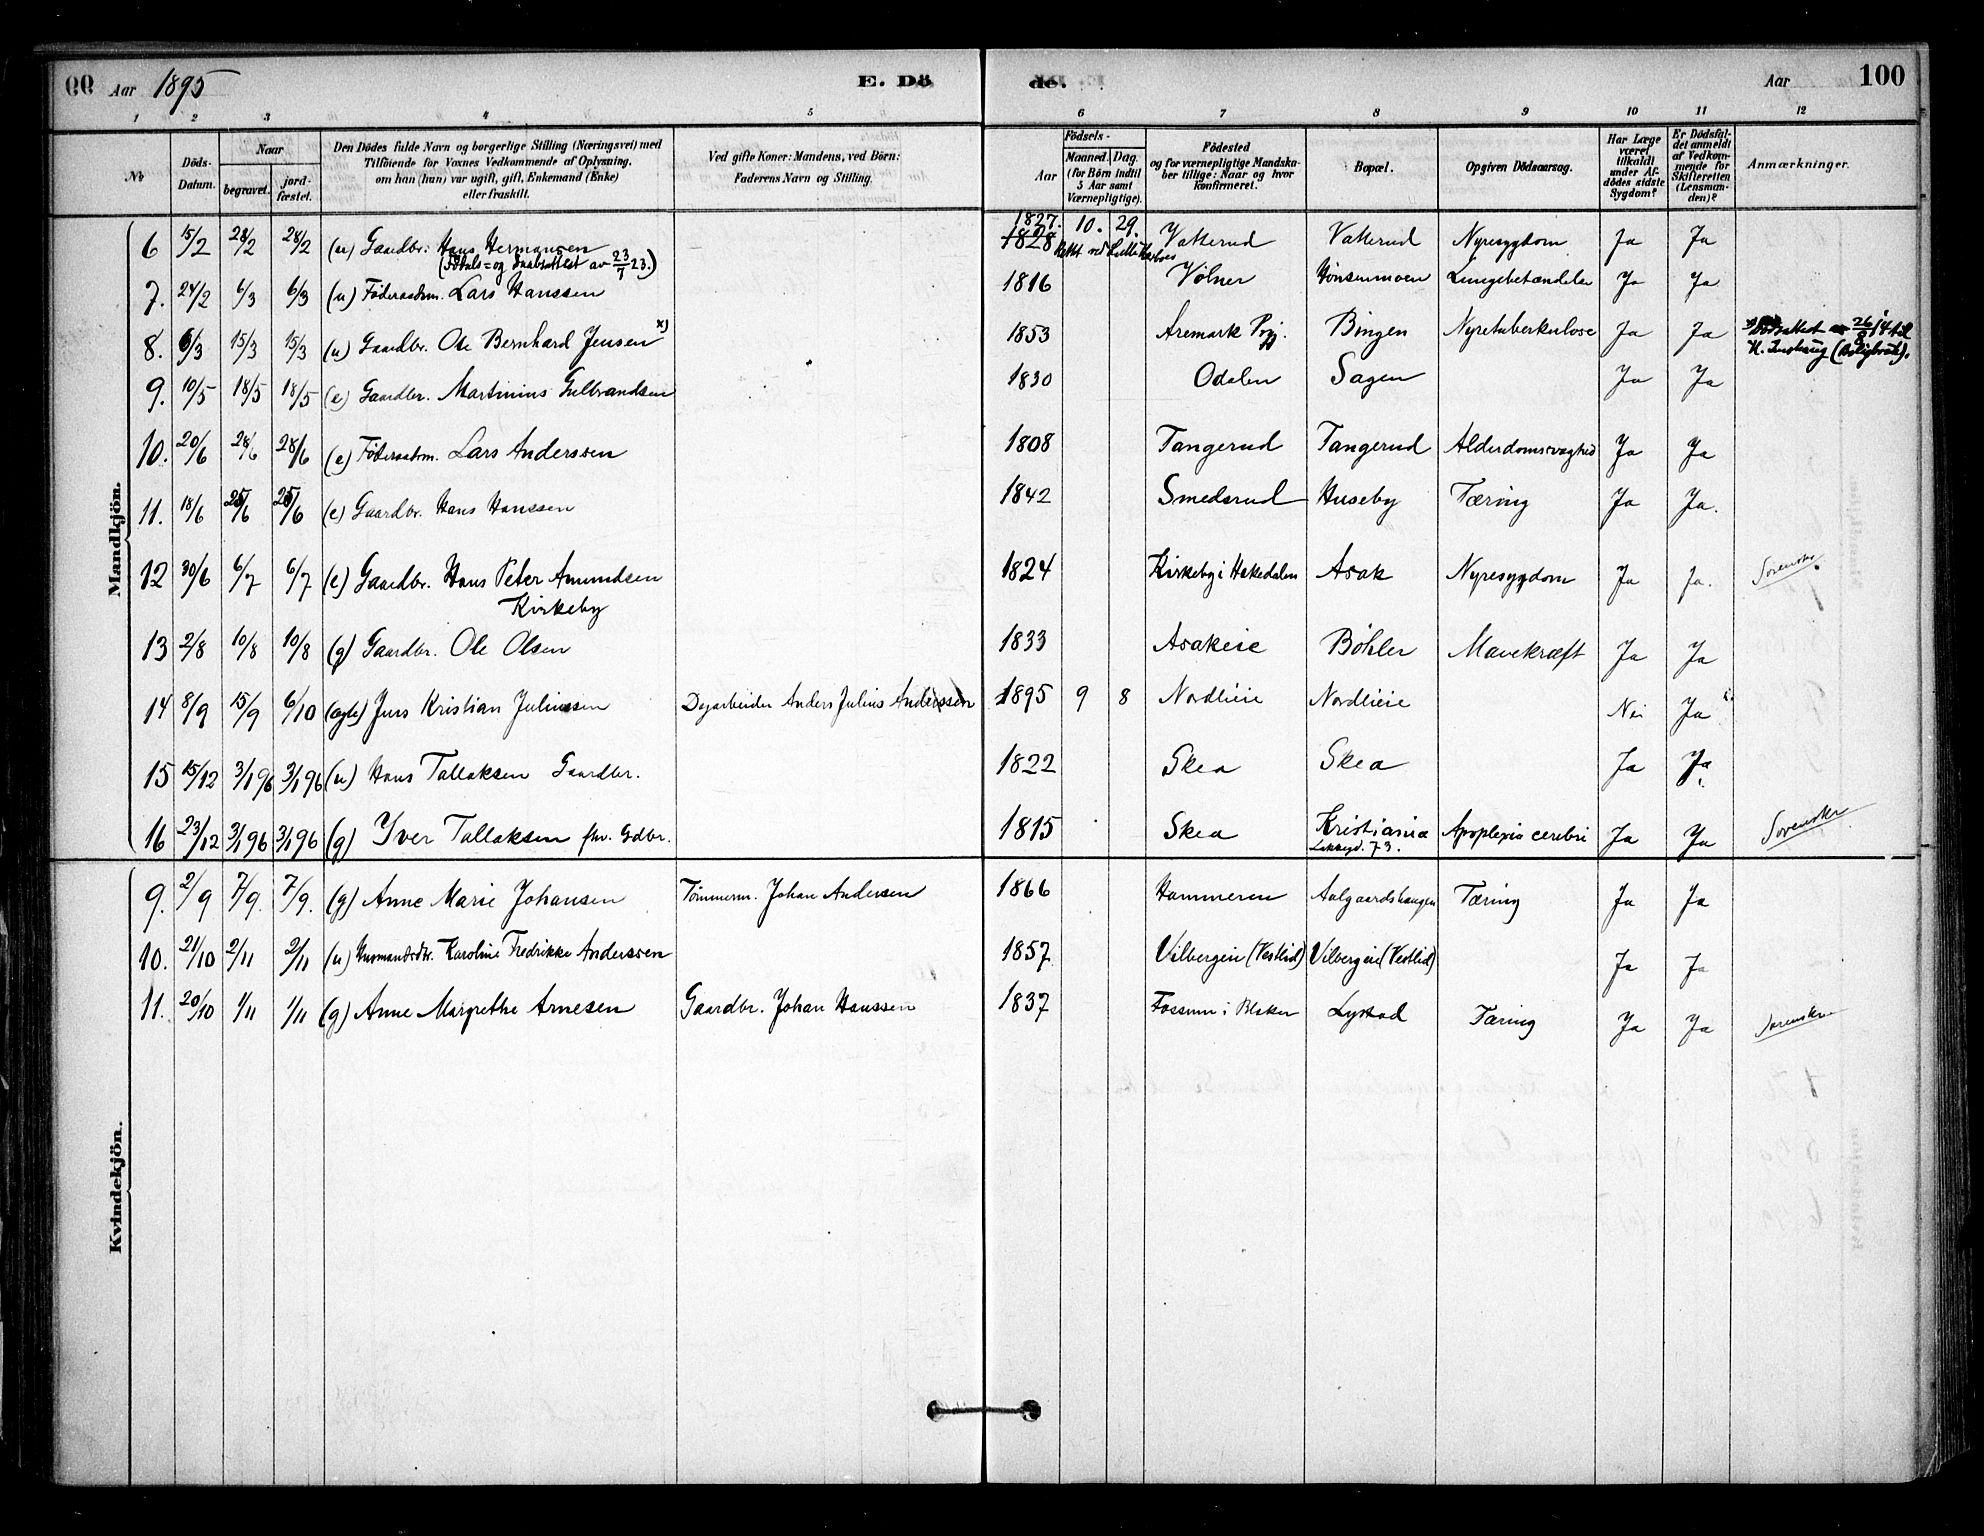 99 Aar 1895 E. Dö
de. Aar 100
1 2 3 4 5 6 7 8 9 10 11 12
No
Döds-Datum.
Naar
begravet.
jordfæstet.
Den Dödes fulde Navn og borgerlige Stilling (Næringsvei) med
Tilföiende for Voxnes Vedkommende af Oplysning,
om han (hun) var ugift, gift, Enkemand (Enke)
eller fraskilt.
Ved gifte Koner: Mandens, ved Börn:
Faderens Navn og Stilling.
Födsels-
Aar
Maaned. Dag.
(for Börn indtil
5 Aar samt
Værnepligtige).
Födested
og for værnepligtige Mandska-
ber tillige: Naar og hvor
konfirmeret.
Bopæl.
Opgiven Dödsaarsag.
Har Læge
været
tilkaldt
under Af-
dödes sidste
Sygdom?
Er Dödsfal-
det anmeldt
af Vedkom-
mende for
Skifteretten
(Lensman-
den)?
Anmærkninger.
Mandkjön.
6 15/2 28/2 28/2 (u) Gaardbr: Hans Hermansen 1827. 10. 29. 1828 Vakkerud Vakkerud Nyresygdom Ja Ja
av 23/7 23.)
7. 24/2 6/3 6/3 (u) Föderaadsm. Lars Hanssen 1816 Völner Hönsenmoen Lungebetændelse Ja Ja
8. 6/3 15/3 15/3 (u) Gaardbr. Ole Bernhard Jensen x) 1853 Aremark Prgj. Bingen Nyretuberkulose Ja Ja
26/8 14 til
9. 10/5 18/5 18/5 (e) Gaardbr. Martinius Gulbrandsen 1830 Odalen Sagen Ja Ja
10. 20/6 28/6 28/6 (e) Föderaadsm. Lars Anderssen 1808 Tangerud Tangerud Alderdomssvaghed Ja Ja
11. 18/6 25/6 25/6 (e) Gaardbr. Hans Hanssen 1842 Smedsrud Huseby Tæring Ja Ja.
12 30/6 6/7 6/7 (e) Gaardbr. Hans Peter Amundsen 1824 Kirkeby i Hakedalen Asak Nyresygdom Ja Ja. Sorenskr.
Kirkeby
13 2/8 10/8 10/8 (g) Gaardbr. Ole Olsen 1833 Asakeie Böhler Mavekræft Ja Ja
14 8/9 15/9 6/10 (ægte) Jens Kristian Juliussen Dagarbeider Anders Julius Anderssen 1895 9 8 Nordlieie Nordlieie Nei Ja
15 15/12 3/1 96 3/1 96 (u) Hans Tallaksen Gaardbr. 1822 Skea Skea Ja Ja
16 23/12 3/1 96 3/1 96 (g) Iver Tallaksen fhv. Gdbr. 1815 Skea Kristiania Apoplexia cerebri Ja Ja Sorenskr.
73.
Kvindekjön.
9. 2/9 7/9. 7/9. (g) Anne Marie Johansen Tömmerm. Johan Andersen 1866 Hammeren Aalgaardshaugen Tæring Ja Ja
10. 21/10 2/11 2/11 (u) Husmandsdtr. Karoline Fredrikke Anderssen 1857 Vilbergeie (Vestlid) Vilbergeie (Vestlid) Ja Ja
11. 20/10 1/11 1/11 (g) Anne Margrethe Arnesen Gaardbr. Johan Hanssen 1837 Fossum i Blaker Lystad Tæring Ja Ja Sorenskr.